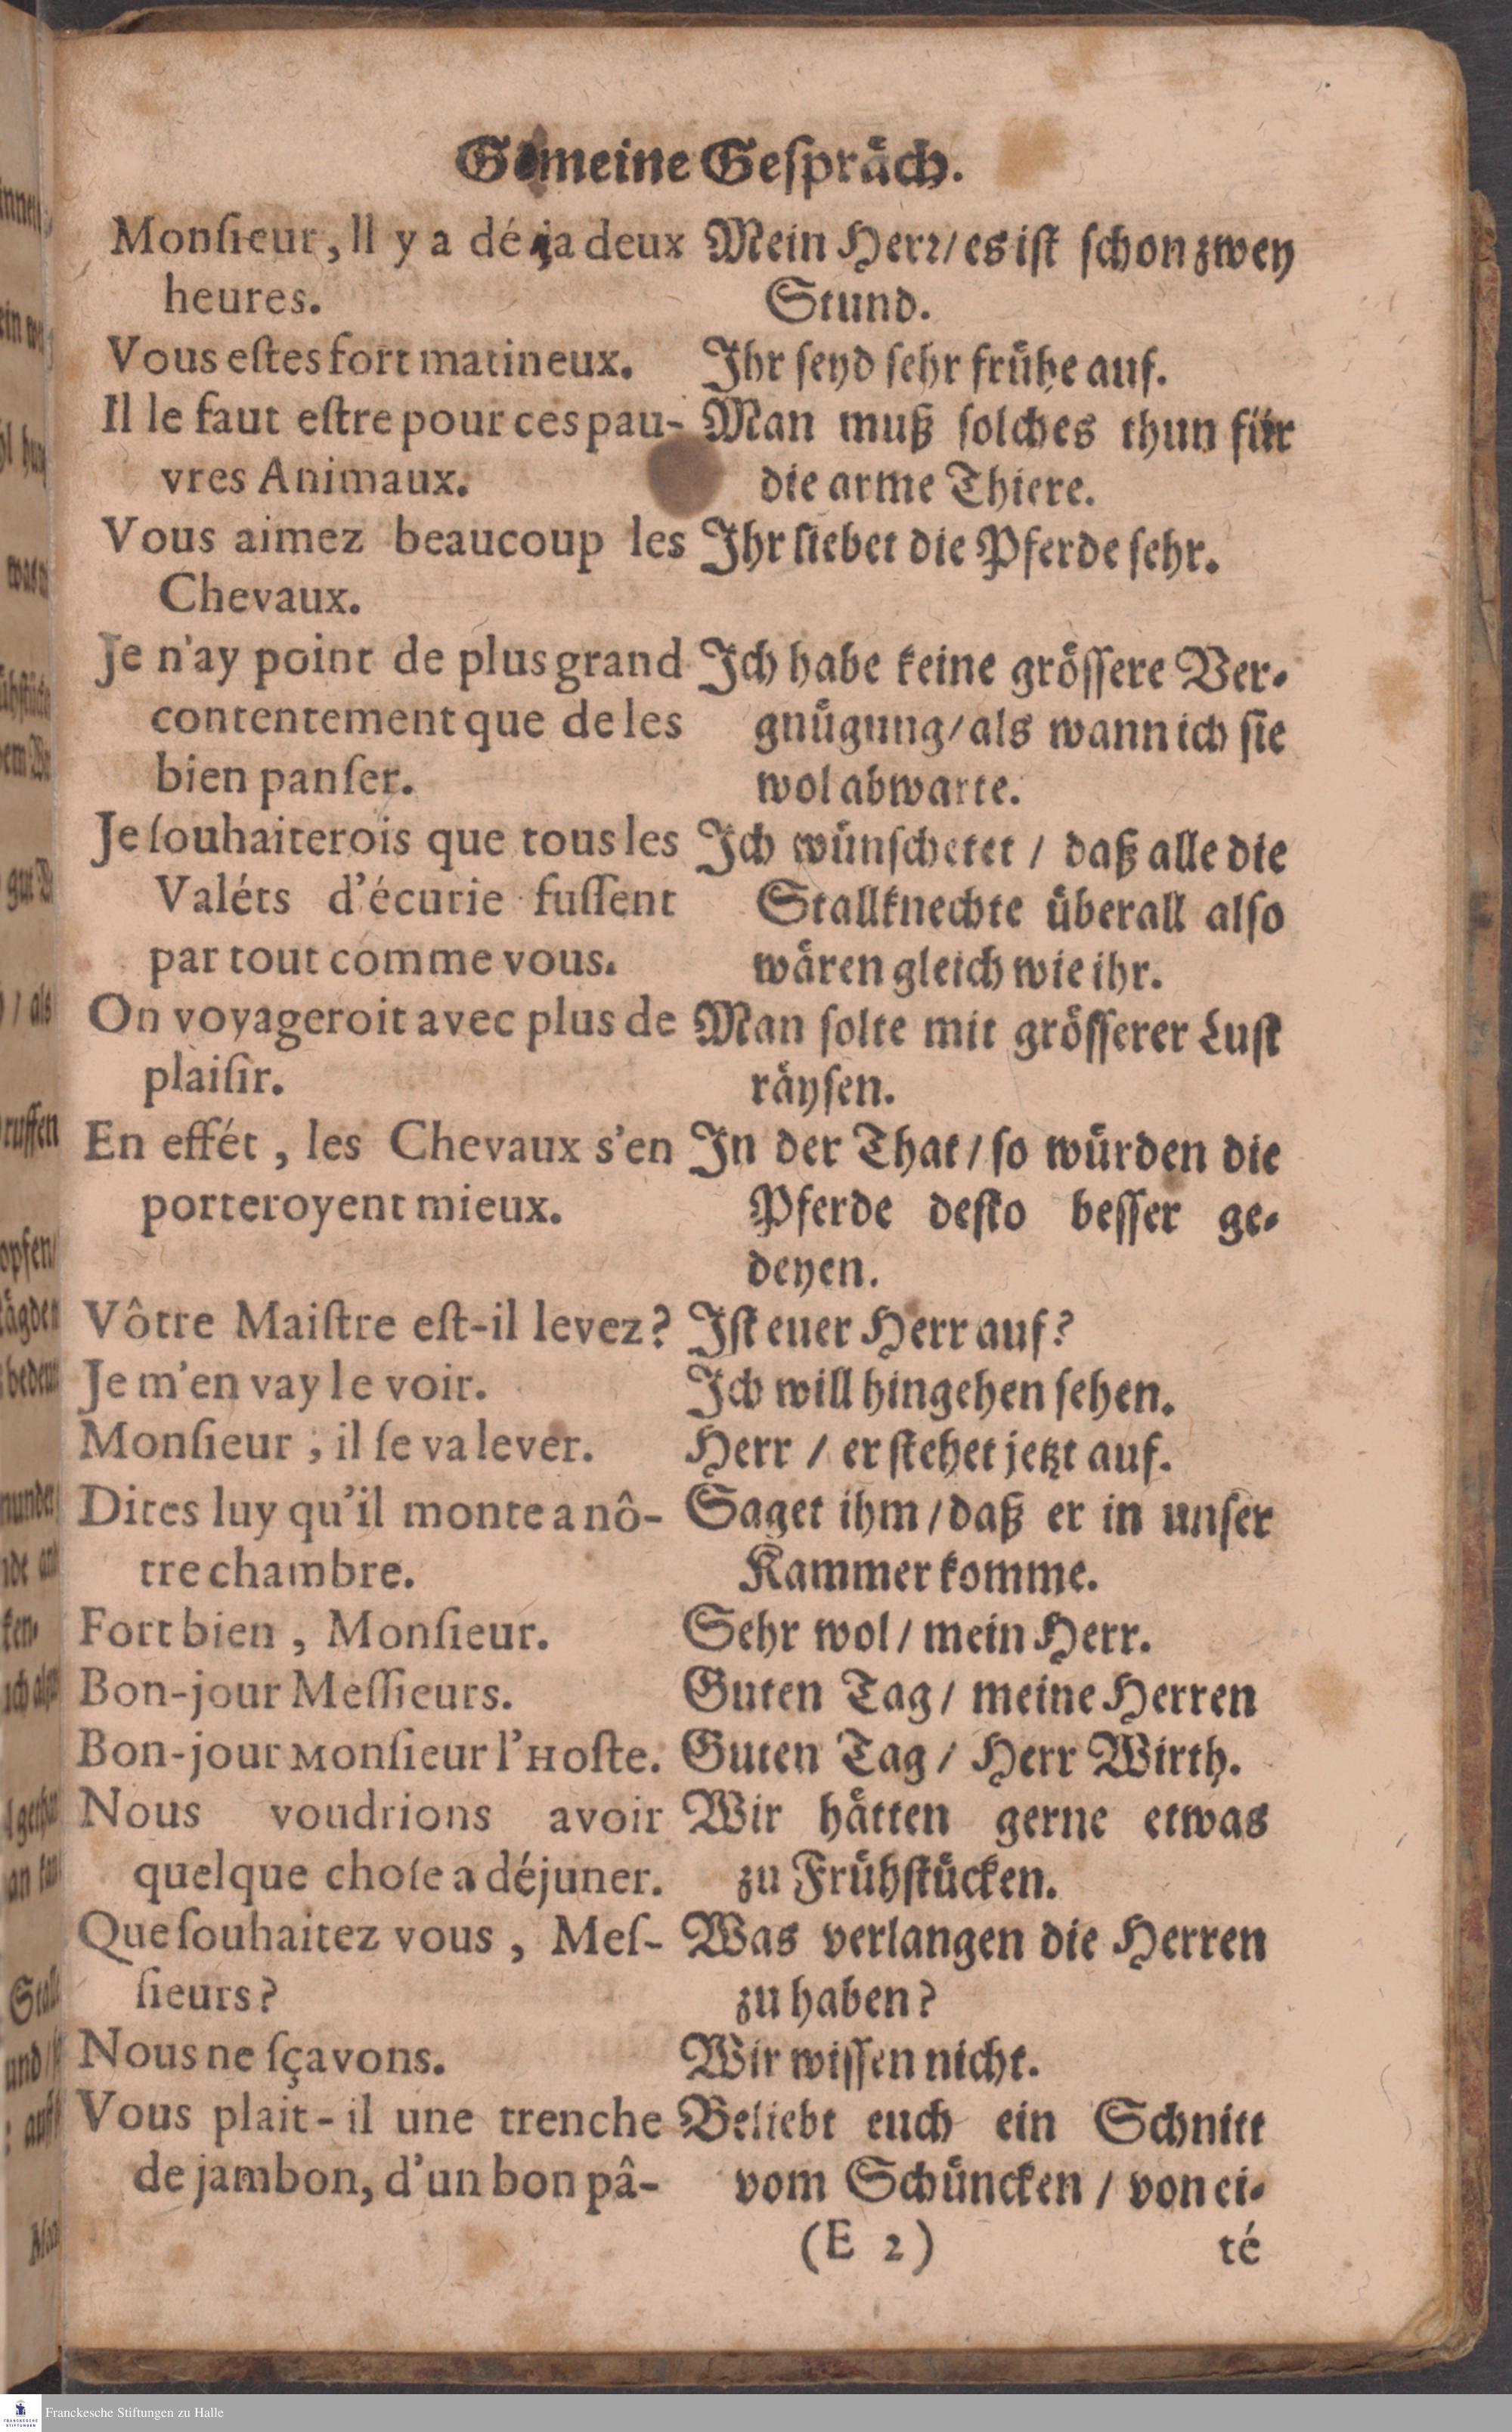 Gemeine Geſpräch.
Monſieur, Il y a déja deux
heures.
Vous eſtes fort matineux.
Il le faut eſtre pour ces pau-
vres Animaux.
Vous aimez beaucoup les
Chevaux.
Je n'ay point de plus grand
contentement que de les
bien panſer.
Je ſouhaiterois que tous les
Valéts d'écurie fuſſent
par tout comme vous.
On voyageroit avec plus de
plaiſir.
En effét, les Chevaux s'en
porteroyent mieux.
Vôtre Maiſtre eſt-il levez?
Je m'en vay le voir.
Monſieur, il ſe va lever.
Dites luy qu'il monte a nô-
tre chambre.
Fort bien, Monſieur.
Bon-jour Meſſieurs.
Bon-jour Monſieur l'Hoſte.
Nous voudrions avoir
quelque choſe a déjuner.
Que ſouhaitez vous, Meſ-
ſieurs?
Nous ne ſçavons.
Vous plait-il une trenche
de jambon, d'un bon pâ-
Mein Herr/ es iſt ſchon zwey
Stund.
Ihr ſeyd ſehr frühe auf.
Man muß ſolches thun für
die arme Thiere.
Ihr liebet die Pferde ſehr.
Ich habe keine gröſſere Ver-
gnügung/ als wann ich ſie
wol abwarte.
Ich wünſchetet / daß alle die
Stallknechte überall alſo
wären gleich wie ihr.
Man ſolte mit gröſſerer Luſt
räyſen.
In der That/ ſo würden die
Pferde deſto beſſer ge-
deyen.
Iſt euer Herr auf?
Ich will hingehen ſehen.
Herr / er ſtehet jetzt auf.
Saget ihm/ daß er in unſer
Kammer komme.
Sehr wol/ mein Herr.
Guten Tag/ meine Herren
Guten Tag/ Herr Wirth.
Wir hätten gerne etwas
zu Frühſtücken.
Was verlangen die Herren
zu haben?
Wir wiſſen nicht.
Beliebt euch ein Schnitt
vom Schüncken / von ei-
(E 2) té
Franckesche Stiftungen zu Halle